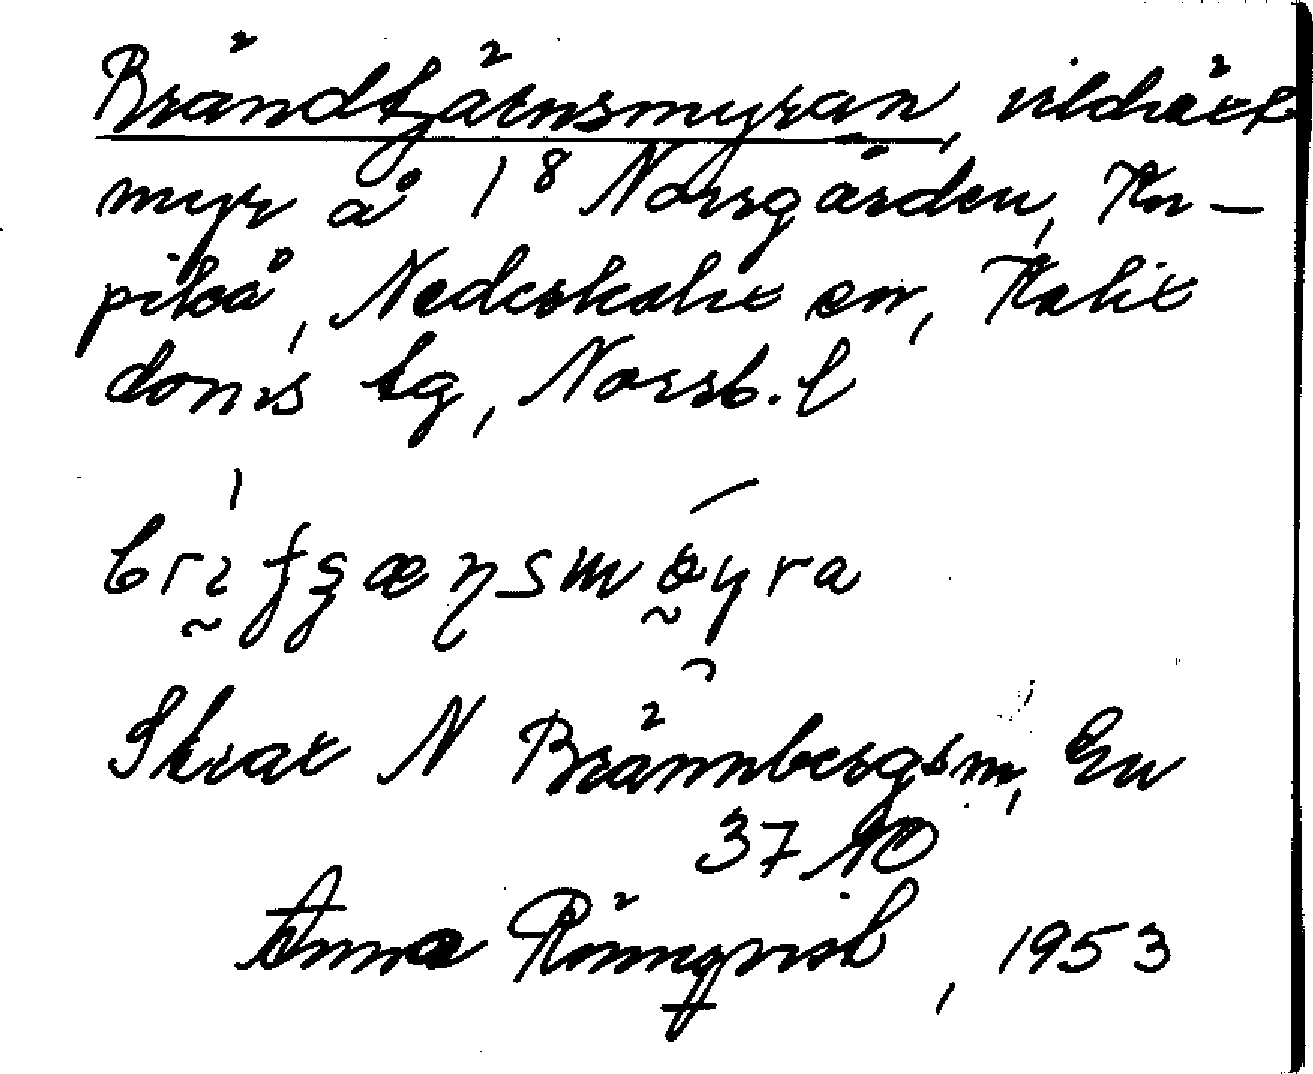 Brändtjärnsmyran, vildväxt
myr å 1⁸ Norrgården, Kor-
pikå, Nederkalix sn, Kalix
doms tg, Norrb. l
brı̰ʄʂæɳsmø̰yra
Skvar N Brännbergsm, Eu
37 NO
Anna Rönnqvist, 1953